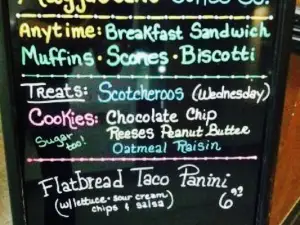 Coffee Co.
Anytime: Breakfast Sandwich
Muffins · Scones · Biscotti
Treats: Scotcheroos (Wednesday)
Cookies: Chocolate Chip
Sugar too! Reeses Peanut Butter
Oatmeal Raisin
Flatbread Taco Panini
(w/ lettuce · sour cream
chips & salsa)